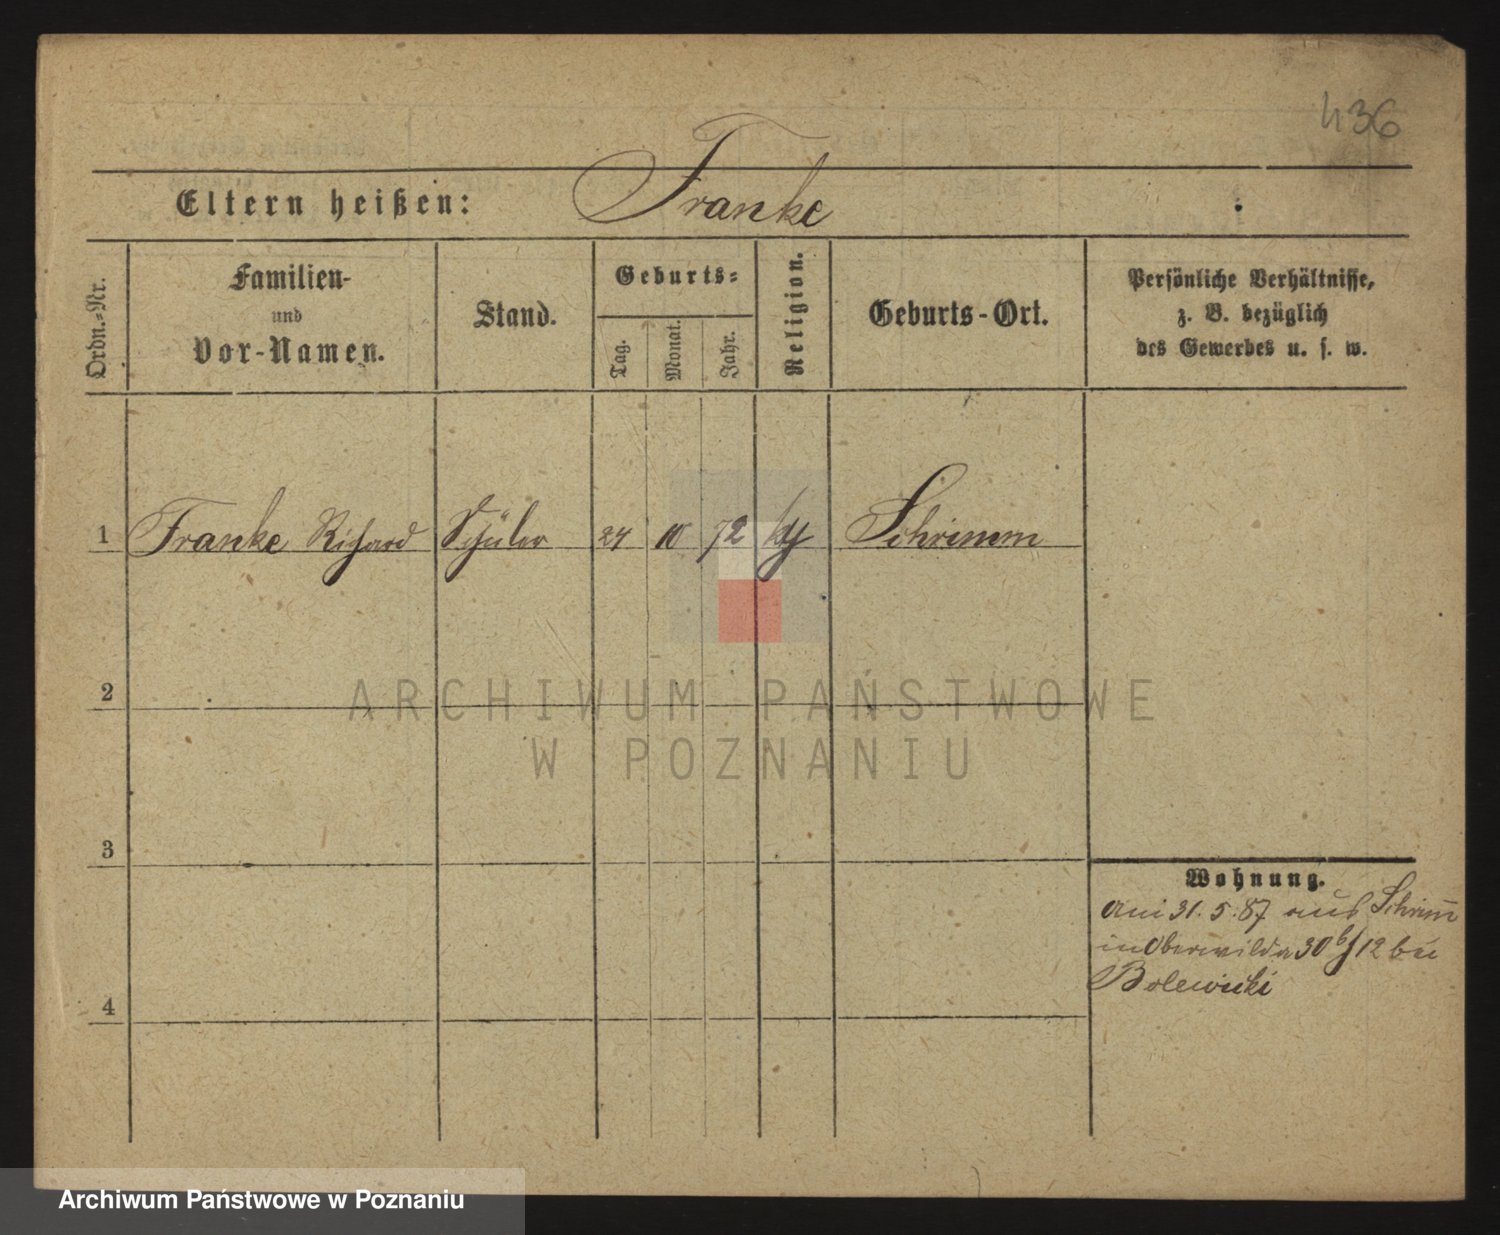 436
Eltern heißen: Franke
Ordn.-Nr.
Familien-
und
Vor-Namen.
Stand.
Geburts-
Tag.
Monat.
Jahr.
Religion.
Geburts-Ort.
Persönliche Verhältnisse,
z. B. bezüglich
des Gewerbes u. s. w.
1 Franke Richard Schüler 24 10 72 Schrimm
2
ARCHIWUM PAŃSTWOWE
W POZNANIU
3
Wohnung.
Am 31.5.87 aus Schrimm
in Oberwilda 30 12 bei
4
Archiwum Państwowe w Poznaniu